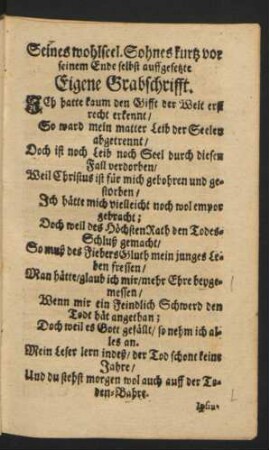 Seines wohlseel. Sohnes kurtz vor
seinem Ende selbst auffgesetzte
Eigene Grabschrifft.
ICh hatte kaum den Gifft der Welt erst
recht erkennt/
So ward mein matter Leib der Seelen
abgetrennt/
Doch ist noch Leib noch Seel durch diesen
Fall verdorben/
Weil Christus ist für mich gebohren und ge-
storben/
Ich hätte mich vielleicht noch wol empor
gebracht;
Doch weil des Höchsten Rath den Todes-
Schluß gemacht/
So muß des Fiebers Gluth mein junges Le-
ben fressen/
Man hätte/glaub ich mir/mehr Ehre beyge-
messen/
Wenn mir ein Feindlich Schwerd den
Todt hät angethan;
Doch weil es Gott gefällt/so nehm ich al-
les an.
Mein Leser lern indeß/der Tod schont keine
Jahre/
Und du stehst morgen wol auch auff der To-
den-Bahre.